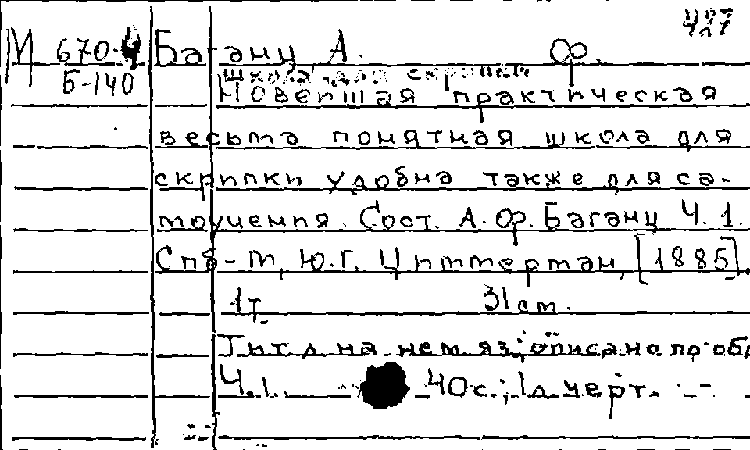 М 670-4 Баганц, А. Ф. 487
Б-140 Школа для скрипки
Новейшая практическая
весьма понятная школа для
скрипки удобна также для са-
моучения. Сост. А. Ф. Баганц Ч. 1.
Спб-М, Ю.Г. Циммерман, [1885].
1т. 31 см.
Тит. л. на нем. яз.; описано по обл.
Ч. 1. 40 с.; 1 л. черт.